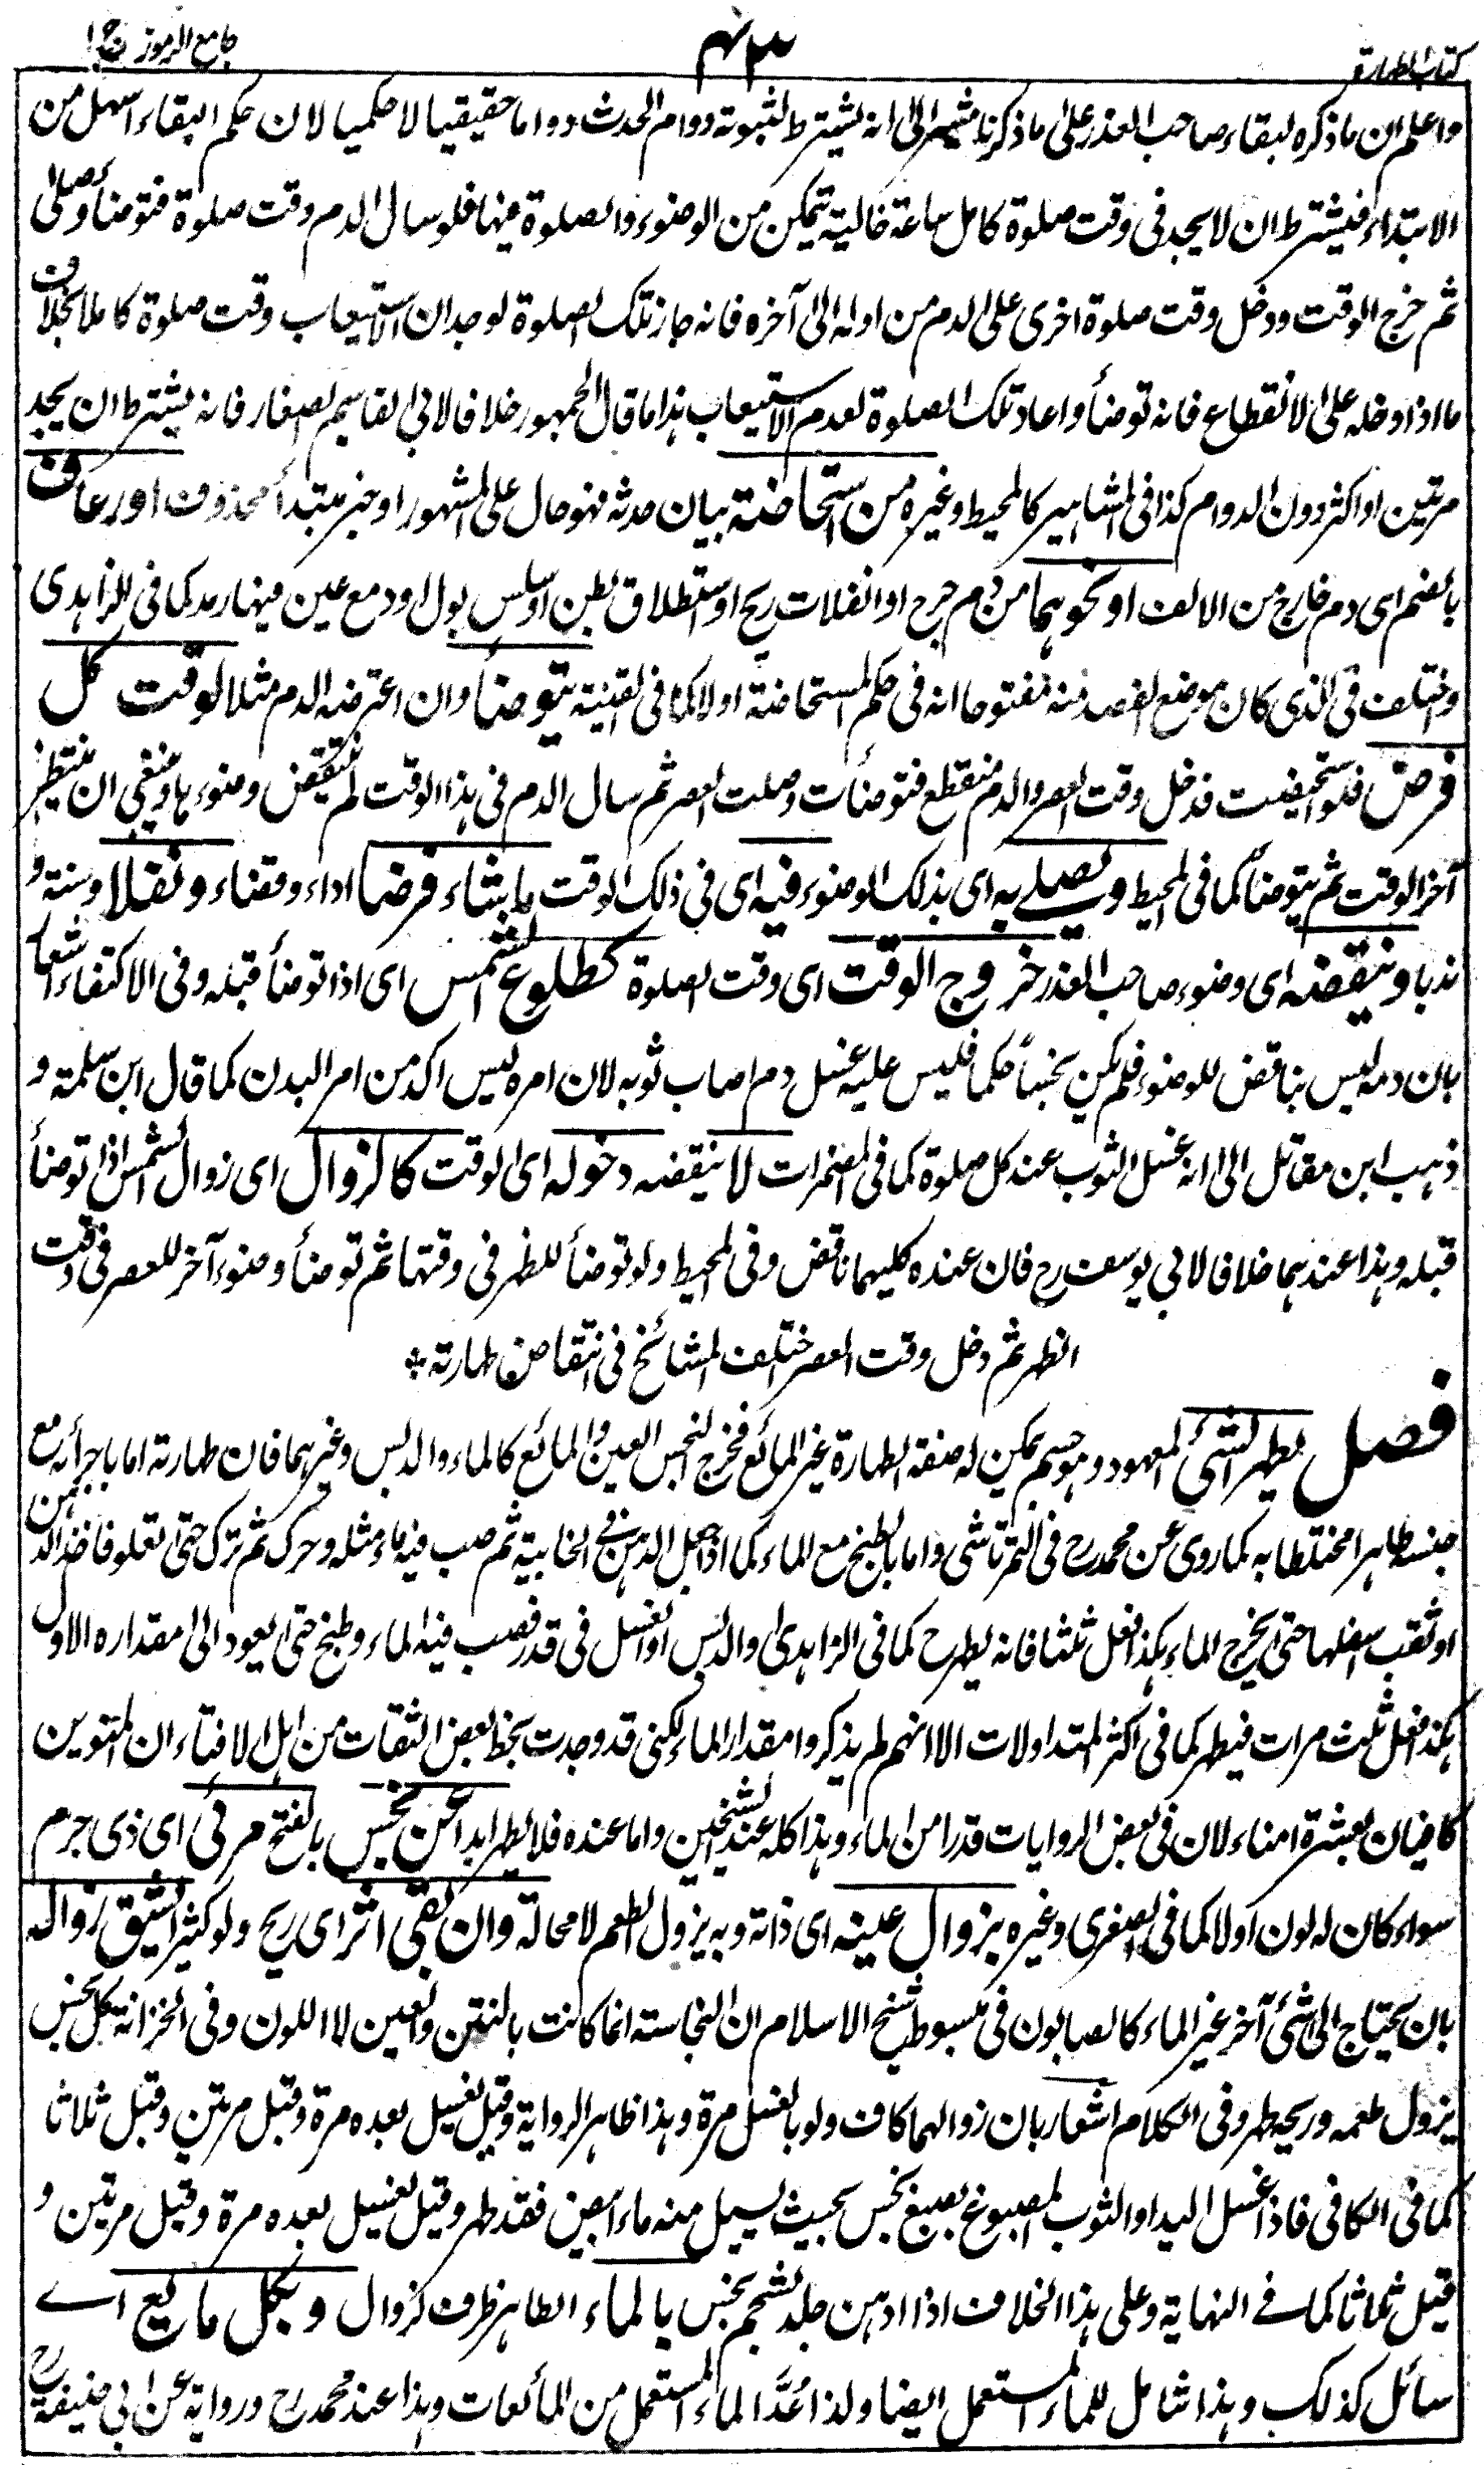 كتاب الطهارة
جامع الرموز ج ا
واعلم ان ما ذكره لبقاء صاحب العذر على ما ذكرنا مشير الى انه يشترط لثبوته دوام الحدث دواما حقيقيا لا حكميا لان حكم البقاء اسهل من
الابتداء فيشترط ان لا يجد فى وقت صلوة كامل ساعة خالية يتمكن من الوضوء والصلوة فيها فلو سال الدم وقت صلوة فتوضأ وصلى
ثم خرج الوقت ودخل وقت صلوة اخرى على الدم من اوله الى آخره فانه جاز تلك الصلوة لوجدان الاستيعاب وقت صلوة كاملا بخلاف
ما اذا دخله على الانقطاع فانه توضأ واعاد تلك الصلوة لعدم الاستيعاب هذا ما قال الجمهور خلافا لابي القاسم الصفار فانه يشترط ان يجد
مرتين او اكثر دون الدوام كذا فى المشاهير كالمحيط وغيره من استحاضة بيان حدثه فهو حال على المشهور او خبر مبتدأ محذوف او رعاف
بالضم اى دم خارج من الانف او نحوهما من دم جرح او انفلات ريح او استطلاق بطن او سلس بول او دمع عين فيها رمد كما فى الزاهدى
واختلف فى الذى كان موضع الفصد منه مفتوحا انه فى حكم المستحاضة او لا كما فى القنية يتوضأ وان اعترضه الدم مثلا لوقت كل
فرض فلو استحيضت فدخل وقت العصر والدم منقطع فتوضأت وصلت العصر ثم سال الدم فى هذا الوقت لم ينتقض وضوءها وينبغى ان ينتظر
آخر الوقت ثم يتوضأ كما فى المحيط ويصلے به اى بذلك الوضوء فيه اى فى ذلك الوقت ما يشاء فرضا اداء وقضاء ونفلا وسنة و
ندبا وينقضه اى وضوء صاحب العذر خروج الوقت اى وقت الصلوة كطلوع الشمس اى اذا توضأ قبله وفى الاكتفاء اشعار
بان دمه ليس بناقض للوضوء فلم يكن نجسا حكما فليس عليه غسل دم اصاب ثوبه لان امره ليس اكد من امر البدن كما قال ابن سلمة و
ذهب ابن مقاتل الى انه غسل الثوب عند كل صلوة كما فى المضمرات لا ينقضه دخوله اى الوقت كالزوال اى زوال الشمس اذا توضأ
قبله وهذا عندهما خلافا لابي يوسف رح فان عنده كليهما ناقض وفى المحيط ولو توضأ للظهر فى وقتها ثم توضأ وضوءا آخر للعصر فى وقت
الظهر ثم دخل وقت العصر اختلف المشائخ فى انتقاض طهارته *
فصل يطهر الشئ المعهود وهو جسم يمكن له صفة الطهارة غير المائع فخرج النجس العين والمائع كالماء والدبس وغيرهما فان طهارته اما باجرائه مع
جنسه طاهرا مختلطا به كما روى عن محمد رح فى التمرتاشى واما بالطبخ مع الماء كما اذا جعل الدهن فى الخابية ثم صب فيه ماء مثله وحرك ثم ترك حتى تعلو فاخذ الدهن
او ثقب اسفلها حتى يخرج الماء هكذا فعل ثلثا فانه يطرح كما فى الزاهدى او الدبس او العسل فى قدر فصب فيه الماء وطبخ حتى يعود الى مقداره الاول
هكذا فعل ثلث مرات فيطهر كما فى اكثر المتداولات الا انهم لم يذكروا مقدار الماء لكنى قد وجدت بخط بعض الثقات من اهل الافتاء ان المنوين
كافيان لعشرة امناء لان فى بعض الروايات قدرا من الماء وهذا كله عند الشيخين واما عنده فلا يطهر ابدا عن نجس بالفتح مرئى اى ذى جرم
سواء كان له لون او لا كما فى الصغرى وغيره بزوال عينه اى ذاته وبه يزول الطعم لا محالة وان بقى اثر اى ريح ولو كثيرا يشق زواله
بان يحتاج الى شئ آخر غير الماء كالصابون فى مبسوط شيخ الاسلام ان النجاسة انما كانت بالنتن والعين لا اللون وفى الخزانة بكل نجس
يزول طعمه وريحه طهر وفى الكلام اشعار بان زوالهما كاف ولو بالغسل مرة وهذا ظاهر الرواية وقيل يغسل بعده مرة وقيل مرتين وقيل ثلاثا
كما فى الكافى فاذا غسل اليد او الثوب المصبوغ بصبغ نجس بحيث يسيل منه ماء ابيض فقد طهر وقيل يغسل بعده مرة وقيل مرتين و
قيل ثلثا كما فے النهاية وعلى هذا الخلاف اذا ادهن جلد بشحم نجس بالماء الطاهر ظرف لزوال وبكل مائع اے
سائل كذلك وهذا شامل للماء المستعمل ايضا ولذا عُدَّ الماء المستعمل من المائعات وهذا عند محمد رح ورواية عن ابي حنيفة رح